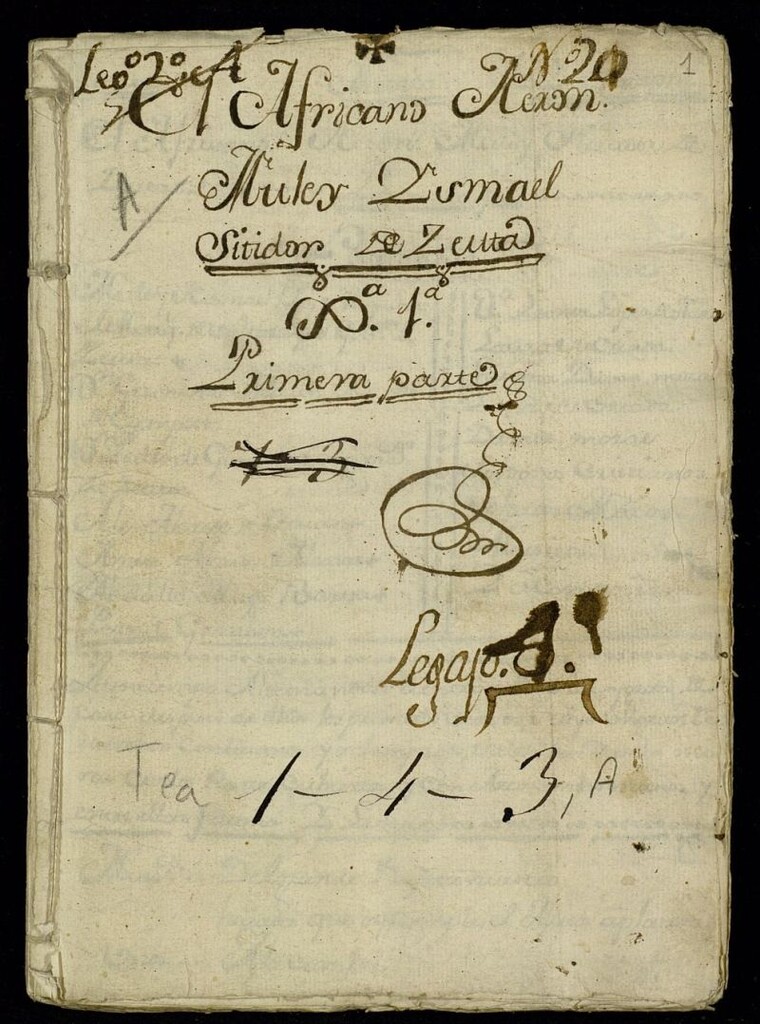 Leg.º 2.º
N. 20
1
El Africano Nexon.
A
Muley Ysmael
Sitidor de Zeuta
Pª. 1.ª
Primera parte
1-3
Legajo.
Tea 1-4-3, A